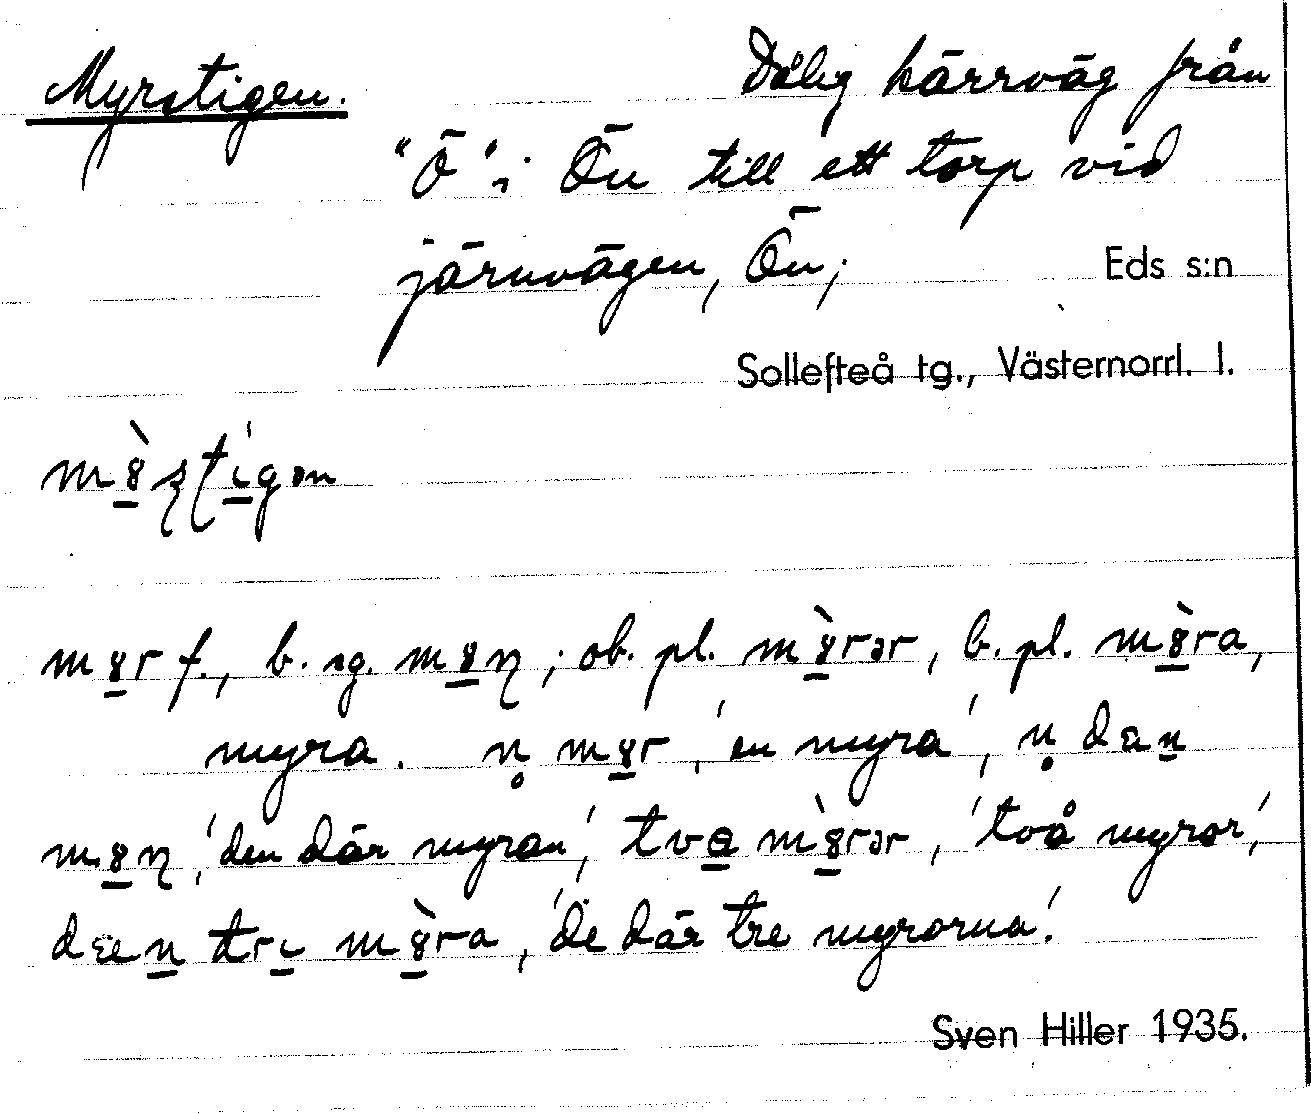 Myrstigen. Dålig kärrväg från
"Ö" i Ön till ett torp vid
järnvägen, Ön; Eds s:n
Sollefteå tg., Västernorrl. l.
m8̀ʂʈígən
m8r f., b. sg. m8ɳ; ob. pl. m8̀rər, b. pl. m8̀ra,
myra. n̥ m8r, 'en myra', n̥ dæn
m8ɳ, 'den där myran', tvɵ m8̀rər, 'två myror',
dæn tri m8̀ra, 'de där tre myrorna'.
Sven Hiller 1935.